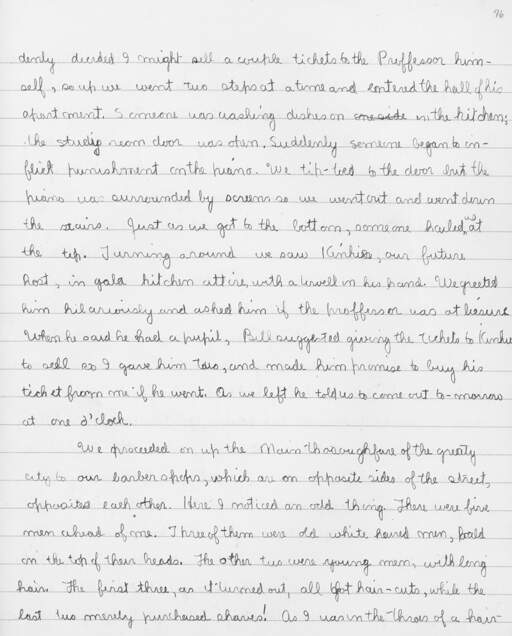 96
denly decided I might sell a couple tickets to the Proffessor him-
self, so up we went two steps at a time and entered the hall of his
apartment. Someone was washing dishes on one side in the kitchen;
the studio room door was open. Suddenly someone began to in-
flict punishment on the piano. We tip-toed to the door but the
piano was surrounded by screens so we went out and went down
the stairs. Just as we got to the bottom, someone hailed us at
the top. Turning around we saw Kinkie, our future
host, in gala kitchen attire, with a towell in his hand. We greeted
him hilariously and asked him if the proffessor was at liesure
When he said he had a pupil, Bill suggested giving the tickets to Kinkie
to sell so I gave him two, and made him promise to buy his
ticket from me if he went. As we left he told us to come out to-morrow
at one o'clock.
We proceeded on up the Main thoroughfare of the greaty
city to our barber shops, which are on opposite sides of the street,
opposites each other. Here I noticed an odd thing. There were five
men ahead of me. Three of them were old white haired men, bald
on the top of their heads. The other two were young men, with long
hair. The first three, as it turned out, all got hair-cuts, while the
last two merely purchased shaves! As I was in the throes of a hair-